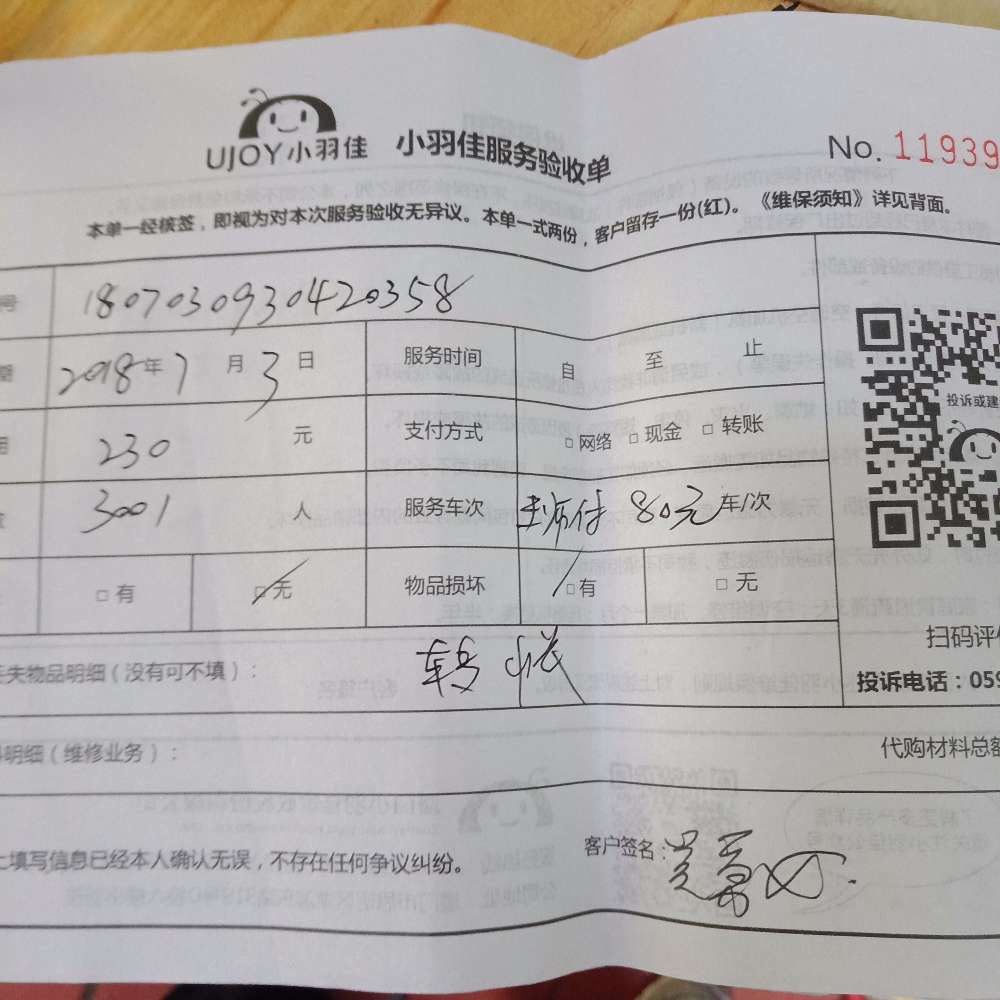 UJOY小羽佳 小羽佳服务验收单 No. 11939
本单一经核签，即视为对本次服务验收无异议。本单一式两份，客户留存一份(红)。《维保须知》详见背面。
号 1807030930420358
2018年7月3日 服务时间 自 至 止
230 元 支付方式 □网络 □现金 □转账
3001 人 服务车次 80元 车/次
投诉或建
□有 □无 物品损坏 □有 □无
扫码评价
失物品明细（没有可不填）：
投诉电话：059
明细（维修业务）： 代购材料总额
上填写信息已经本人确认无误，不存在任何争议纠纷。 客户签名：